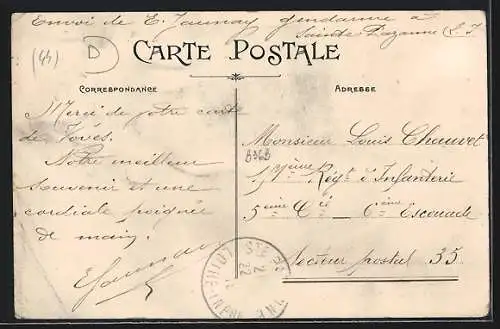 Envoi de E. Jaunay gendarme à
Sainte Pazanne (L. I
(44)
D
CARTE POSTALE
CORRESPONDANCE
ADRESSE
Merci de votre carte
de Voves.
Notre meilleur
souvenir et une
cordiale poignée
de main.
EJaunay
Monsieur Louis Chauvet
Régt d'Infanterie
5ème Cie _ 6ème Escouade
Secteur postal 35